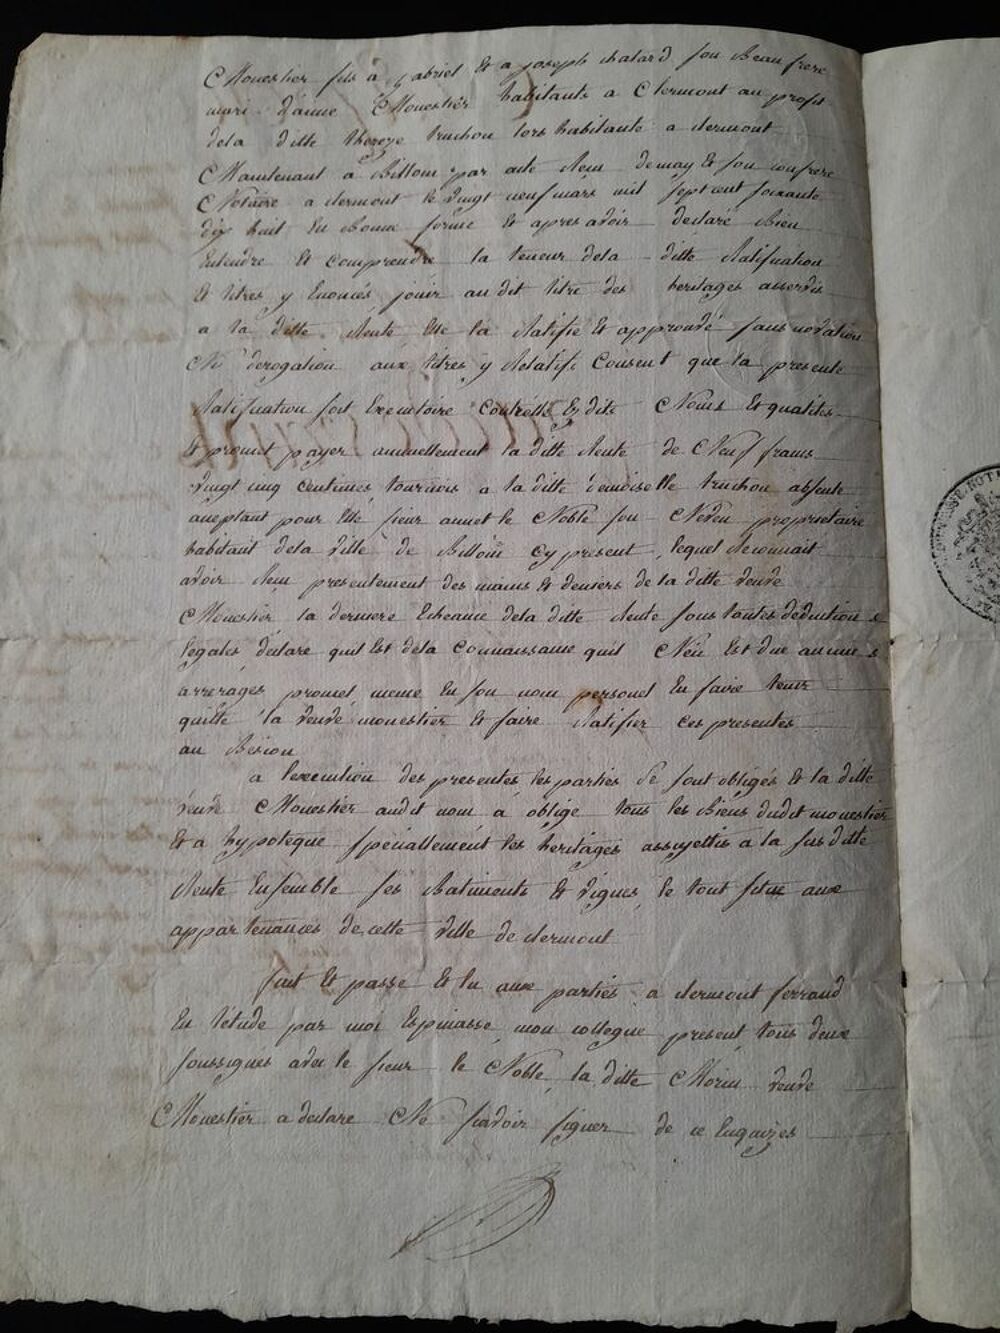 Mouestier fils a gabriel et a joseph chalard son Beau frere
mari d'anne Mouestier habitants a Clermont au profit
dela ditte thereze truchon lors habitante a clermont
Maintenant a Billom par acte Reçu demay et son confrere
Notaire a clermont le vingt neuf mars mil sept cent soixante
dix huit En Bonne forme et apres avoir declaré Bien
Entendre et comprendre la teneur dela ditte Ratification
et titres y Enoncés jouir au dit titre des heritages asservis
a la ditte Rente Elle la Ratifie et approuve sans novation
Ni derogation aux titres y Relatifs Consent que la presente
Ratification soit Executoire Contrelle Esdits Noms et qualites
et promet payer annuellement la ditte Rente de Neuf francs
vingt cinq centimes tournois a la ditte demoiselle truchon absente
aceptant pour Elle sieur annet le Noble son Neveu proprietaire
habitant dela ville de Billom cy present, lequel Reconnait
avoir Reçu presentement des mains et deniers de la ditte veuve
Mouestier la derniere Echeance dela ditte Rente sous toutes deductions
legales, declare quil est dela connaissance quil N'en est due aucuns
arrerages promet meme En son nom personel En faire tenir
quitte la veuve mouestier et faire Ratifier ces presentes
au Besoin
a l'execution des presentes les parties se sont obligés et la ditte
veuve Mouestier audit nom a obligé tous les Biens dudit mouestier
et a hypotequé spéciallement les heritages assujettis a la susditte
Rente Ensemble ses Batiments et vignes, le tout situé aux
appartenances de cette ville de clermont
fait et passé et lu aux parties a clermont ferrand
En l'étude par moi Espinasse, mon collegue present tous deux
soussignes avec le sieur le Noble, la ditte Morin veuve
Mouestier a declaré Ne savoir signer de ce Enquizes